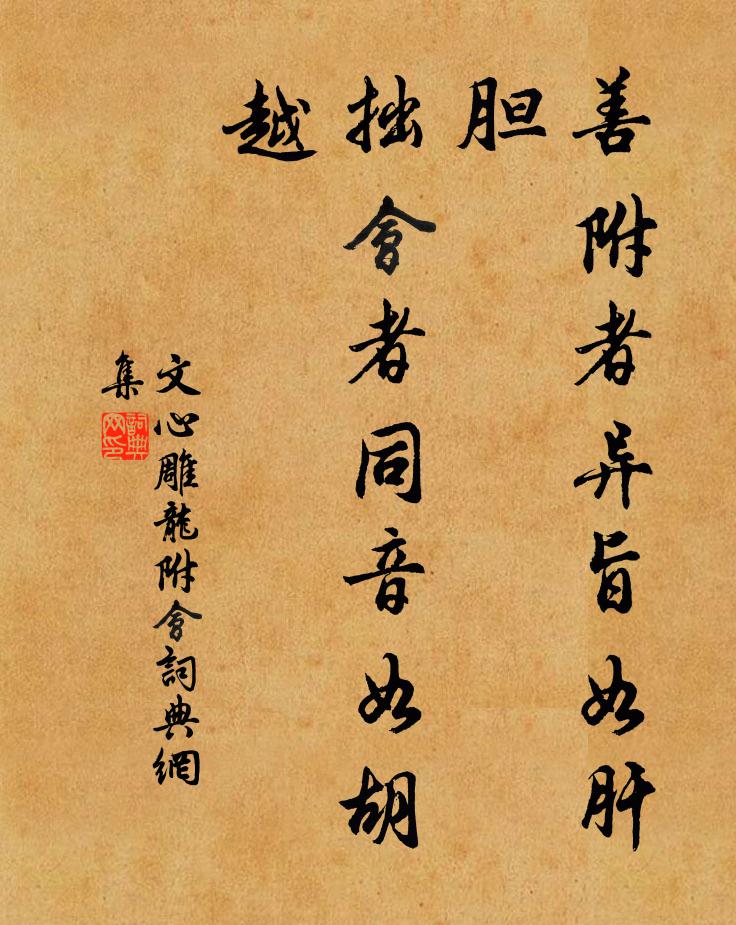 善附者异旨如肝
胆
拙會者同音如胡
越
文心雕龍附會詞典網
集
詞典
网印